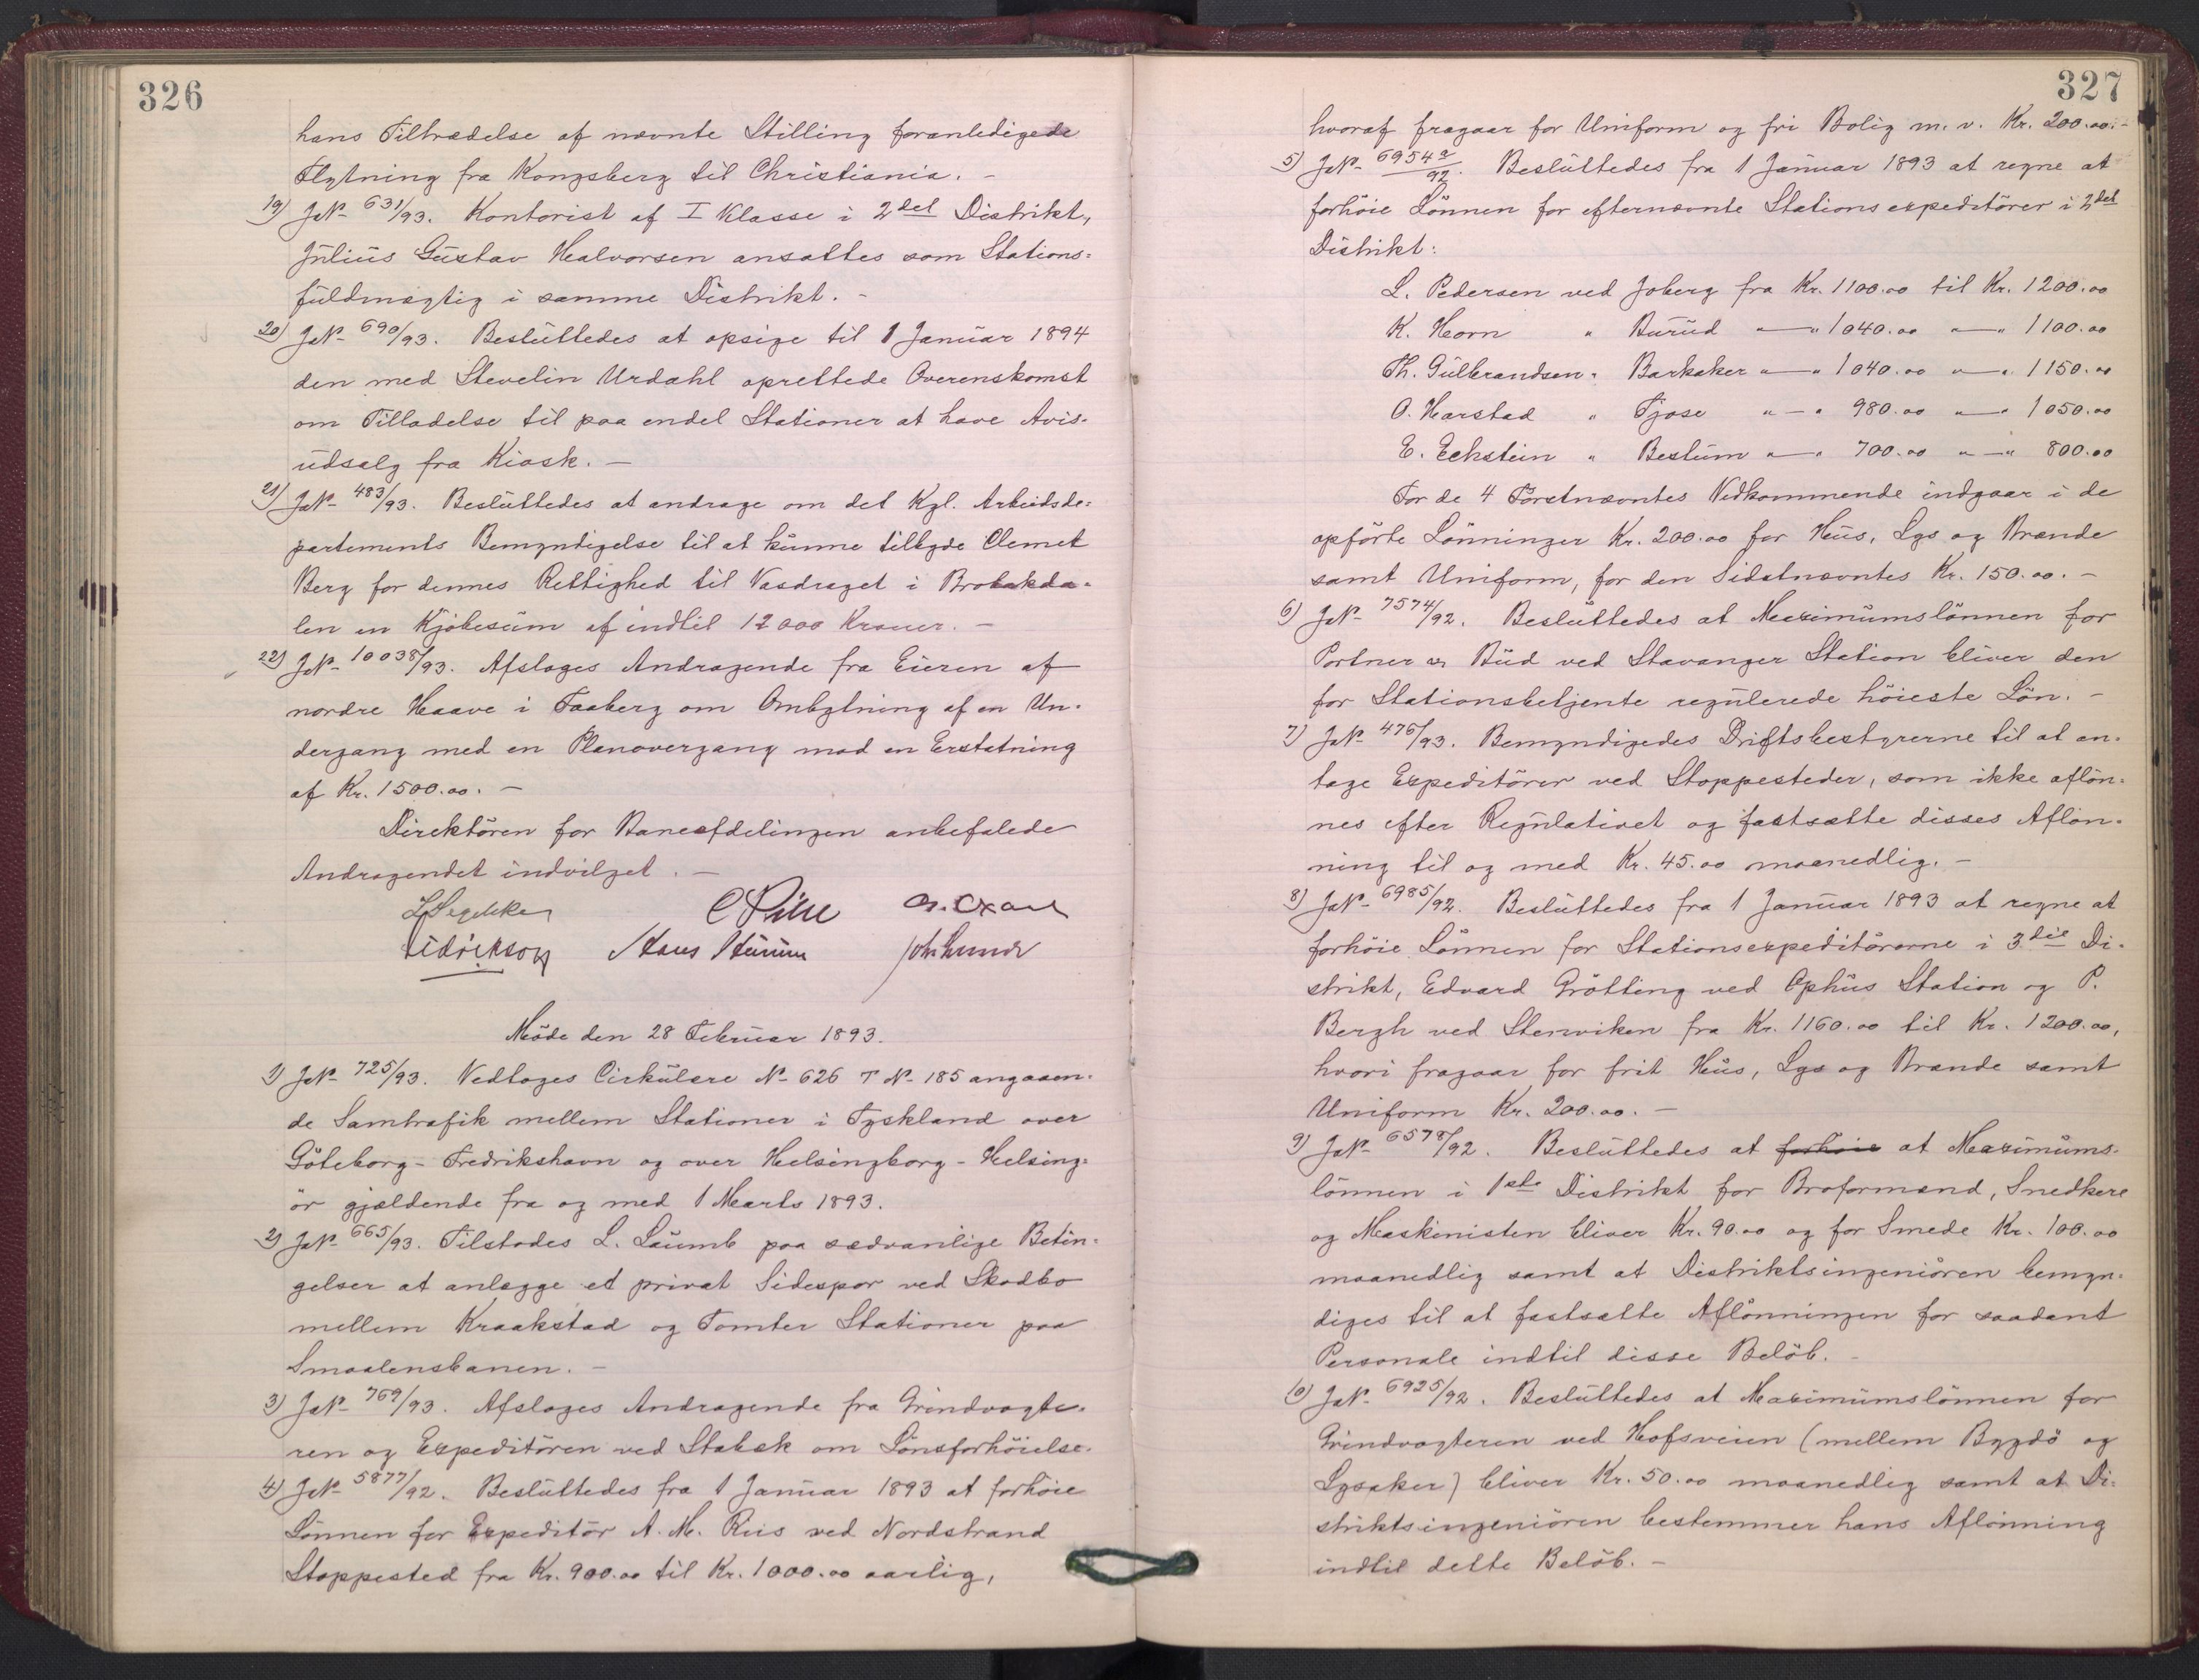 326
hans Tiltrædelse af nævnte Stilling foranledigede
Flytning fra Kongsberg til Christiania. -
19) JN- 631/93. Kontorist af I Klasse i 2det Distrikt,
Julius Gustav Halvorsen ansattes som Stations=
fuldmægtig i samme Distrikt. -
20) JN- 690/93. Besluttedes at opsige til 1 Januar 1894
den med Stevelin Urdahl oprettede Overenskomst
om Tilladelse til paa endel Stationer at have Avis-
udsalg fra Kiosk. -
21) JN- 483/93. Besluttedes at andrage om det Kgl. Arbeidsde=
partements Bemyndigelse til at kunne tilbyde Clemet
Berg for dennes Rettighed til Vasdraget i Brobakda-
len en Kjøbesum af indtil 12000 Kroner. -
22) JN- 10038/93. Afsloges Andragende fra Eieren af
nordre Haave i Faaberg om Ombytning af en Un-
dergang med en Planovergang mod en Erstatning
af Kr. 1500.00. -
Direktören for Baneafdelingen anbefalede
Andragendet indvilget. -
L Segelcke C Pihl
Fedrikson Hans Hurum Joh. Lund
Möde den 28 Februar 1893.
1) JN- 725/93. Vedtoges Cirkulære N- 626 T N- 185 angaaen-
de Samtrafik mellem Stationer i Tyskland over
Göteborg - Fredrikshavn og over Helsingborg - Helsing-
ör gjældende fra og med 1 Marts 1893.
2) JN- 665/93. Tilstodes L. Laumb paa sædvanlige Betin-
gelser at anlægge et privat Sidespor ved Skodbo
mellem Kraakstad og Tomter Stationer paa
Smaalensbanen. -
3) JN- 769/93. Afsloges Andragende fra Grindvogte-
ren og Expeditören ved Stabæk om Lönsforhöielse.
4) JN- 5877/92. Besluttedes fra 1 Januar 1893 at forhöie
Lönnen for Expeditör A. M. Riis ved Nordstrand
Stoppested fra Kr. 900.00 til Kr. 1000.00 aarlig,
327
hvoraf fragaar for Uniform og fri Bolig m. v. Kr. 200.00.-
5) JN- 6954 a/92. Besluttedes fra 1 Januar 1893 at regne at
forhöie Lönnen for efternævnte Stationsexpeditörer i 2det
Distrikt:
L. Pedersen ved Joberg fra Kr. 1100.00 til Kr. 1200.00
K. Horn " Burud " — " 1040.00 " — " 1100.00
Th. Gulbrandsen " Barkaker " — " 1040.00 " — " 1150.00
O. Harstad " Tjose " — " 980.00 " — " 1050.00
E. Echstein " Bestum " — " 700.00 " — " 800.00
For de 4 Førstnævntes Vedkommende indgaar i de
opförte Lönninger Kr. 200.00 for Hus, Lys og Brænde
samt Uniform, for den Sidstnævntes Kr. 150.00. -
6) JN- 7574/92. Besluttedes at Maximumslönnen for
Portner og Bud ved Stavanger Station bliver den
for Stationsbetjente regulerede höieste Lön. -
7) JN- 476/93. Bemyndigedes Driftsbestyrerne til at an-
tage Expeditörer ved Stoppesteder, som ikke aflön-
nes efter Regulativet og fastsætte disses Aflön-
ning til og med Kr. 45.00 maanedlig. -
8) JN- 6985/92. Besluttedes fra 1 Januar 1893 at regne at
forhöie Lönnen for Stationsexpeditörerne i 3die Di-
strikt, Edvard Grötting ved Ophus Station og P.
Bergh ved Stenviken fra Kr. 1160.00 til Kr. 1200.00,
hvori fragaar for frit Hus, Lys og Brænde samt
Uniform Kr. 200.00. -
9) JN- 6578/92. Besluttedes at forhöie at Maximums-
lönnen i 1ste Distrikt for Broformænd, Snedkere
og Maskinisten bliver Kr. 90.00 og for Smede Kr. 100.00
maanedlig samt at Distriktsingeniören bemyn-
diges til at fastsætte Aflönningen for saadant
Personale indtil disse Belöb. -
10) JN- 6925/92. Besluttedes at Maximumslönnen for
Grindvogteren ved Hofsveien (mellem Bygdö og
Lysaker) bliver Kr. 50.00 maanedlig samt at Di-
striktsingeniören bestemmer hans Aflönning
indtil dette Belöb. -